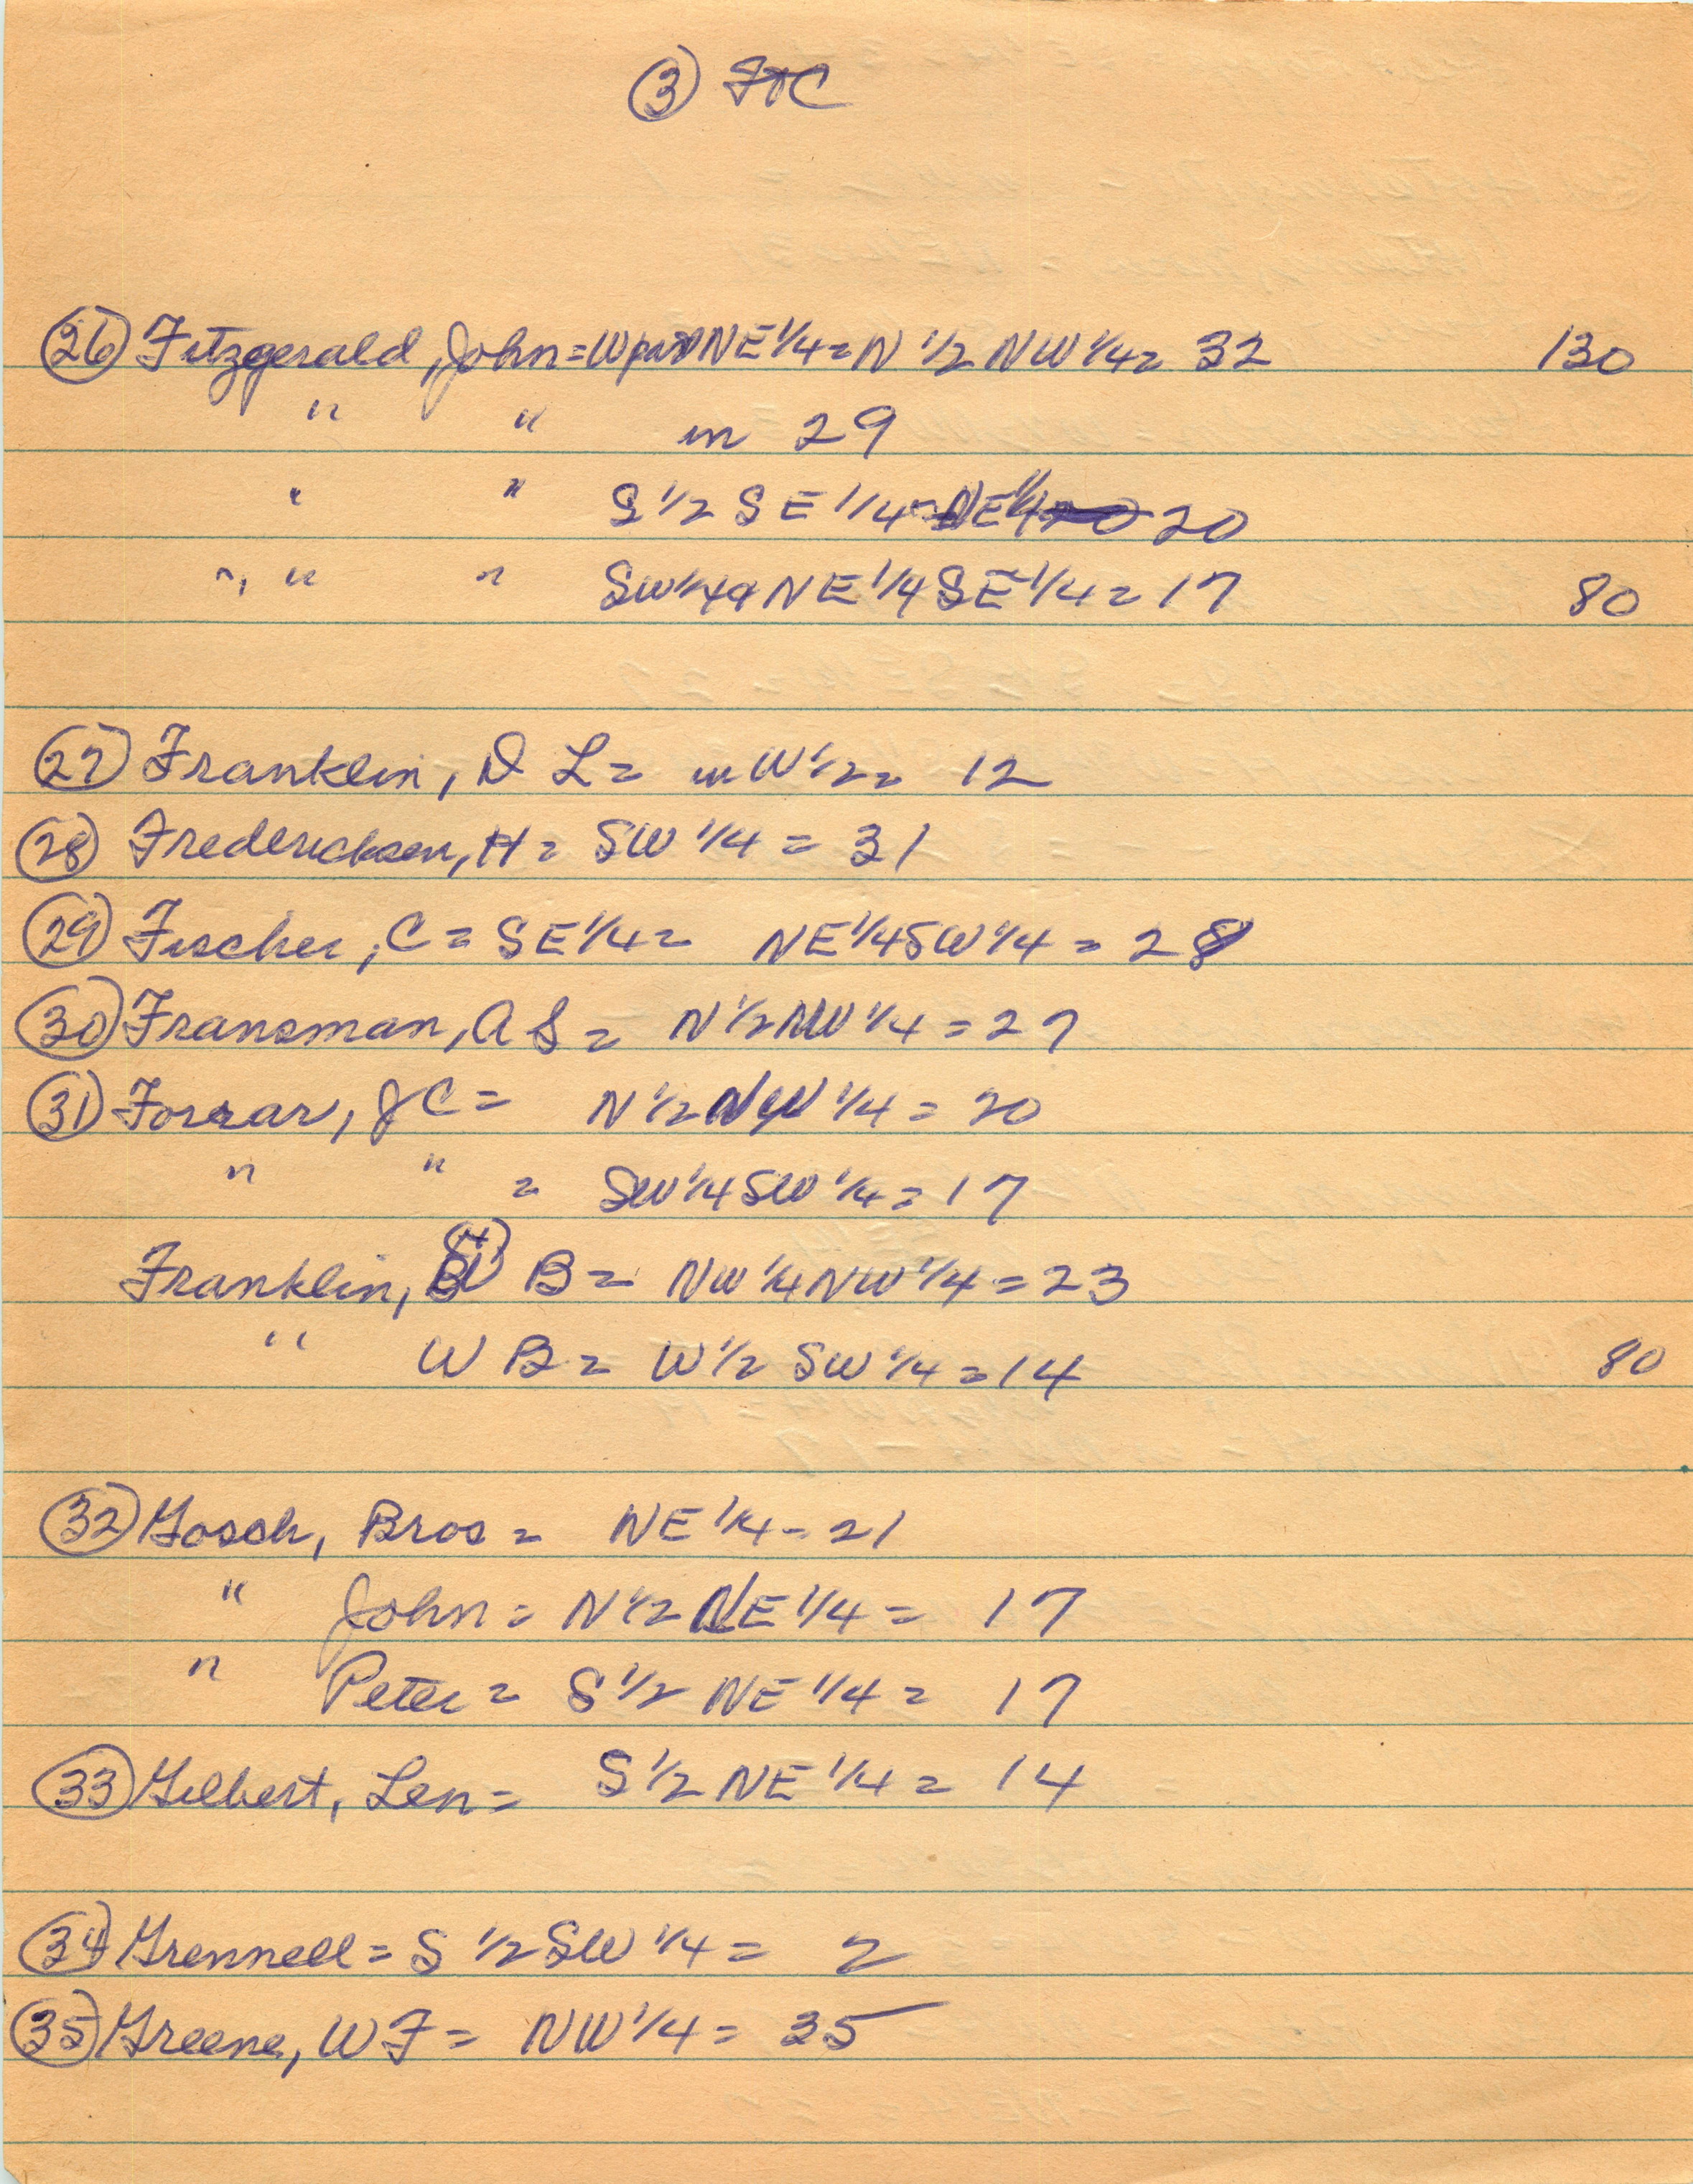 (3) FTC
(26) Fitzgerald, John = W part NE 1/4 = N 1/2 NW 1/4 = 32 130
" " in 29
" " S 1/2 SE 1/4 = NE 1/4 20
", " " SW 1/4 a NE 1/4 SE 1/4 = 17 80
(27) Franklin, D L = in W 1/2 = 12
(28) Fredericksen, H = SW 1/4 = 31
(29) Fischer, C = SE 1/4 = NE 1/4 SW 1/4 = 28
(30) Fransman, A S = N 1/2 NW 1/4 = 27
(31) Forrar, J C = N 1/2 NW 1/4 = 20
" " = SW 1/4 SW 1/4 = 17
Franklin, B = NW 1/4 NW 1/4 = 23
" W B = W 1/2 SW 1/4 = 14 80
(32) Gosch, Bros = NE 1/4 - 21
" John = N 1/2 NE 1/4 = 17
" Peter = S 1/2 NE 1/4 = 17
(33) Gilbert, Len = S 1/2 NE 1/4 = 14
(34) Grennell = S 1/2 SW 1/4 = 2
(35) Greene, W F = NW 1/4 = 35